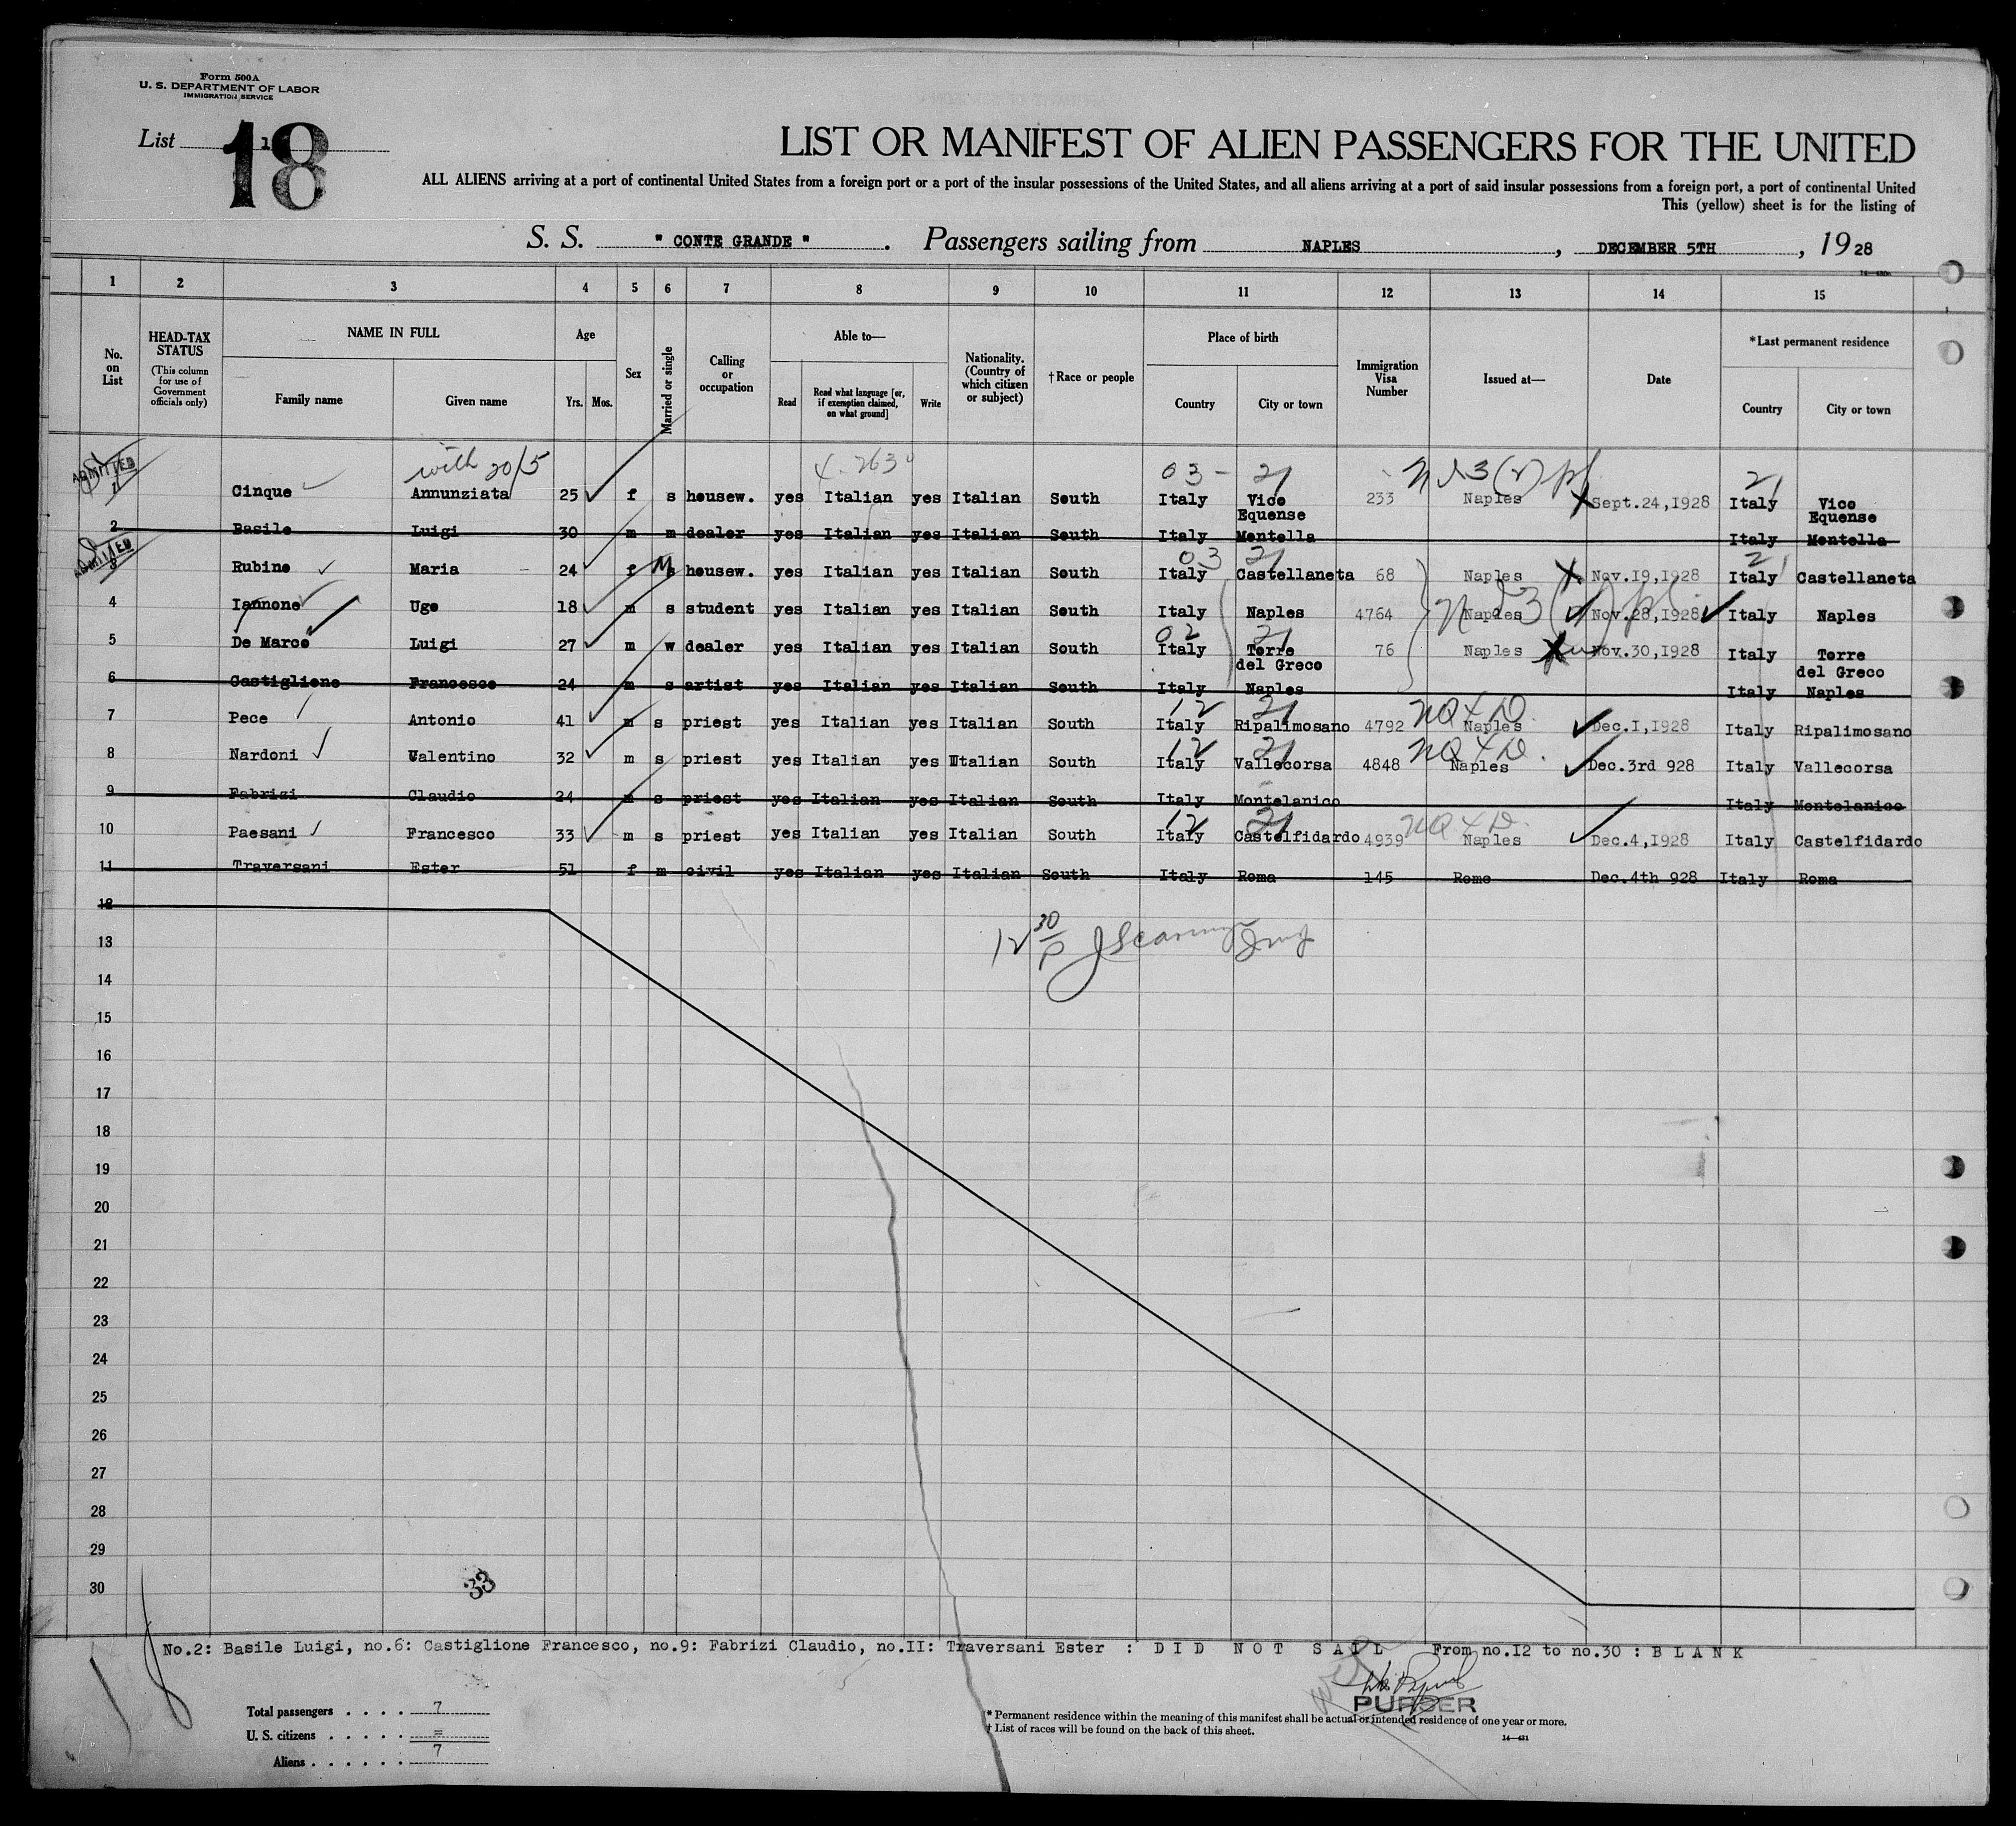 Form 500A
U. S. DEPARTMENT OF LABOR
IMMIGRATION SERVICE
List 18
LIST OR MANIFEST OF ALIEN PASSENGERS FOR THE UNITED
ALL ALIENS arriving at a port of continental United States from a foreign port or a port of the insular possessions of the United States, and all aliens arriving at a port of said insular possessions from a foreign port, a port of continental United
This (yellow) sheet is for the listing of
S. S. " CONTE GRANDE " . Passengers sailing from NAPLES , DECEMBER 5TH , 1928
1 2 3 4 5 6 7 8 9 10 11 12 13 14 15
No. on List
HEAD-TAX STATUS
(This column for use of Government officials only)
NAME IN FULL
Family name Given name
Age
Yrs. Mos.
Sex
Married or single
Calling or occupation
Able to—
Read Read what language [or, if exemption claimed, on what ground] Write
Nationality. (Country of which citizen or subject)
†Race or people
Place of birth
Country City or town
Immigration Visa Number
Issued at—
Date
*Last permanent residence
Country City or town
with 20/5 03 - 21 21
ADMITTED
1 Cinque Annunziata 25 f s housew. yes Italian yes Italian South Italy Vico Equense 233 Naples Sept.24,1928 Italy Vico Equense
2 Basile Luigi 30 m m dealer yes Italian yes Italian South Italy Montella Italy Montella
ADMITTED
03 21 2
3 Rubino Maria 24 f M housew. yes Italian yes Italian South Italy Castellaneta 68 Naples Nov.I9,I928 Italy Castellaneta
4 Iannone Ugo 18 m s student yes Italian yes Italian South Italy Naples 4764 Naples Nov.28,I928 Italy Naples
02 21
5 De Marco Luigi 27 m w dealer yes Italian yes Italian South Italy Torre del Greco 76 Naples Nov.30,I928 Italy Torre del Greco
6 Castiglione Francesco 24 m s artist yes Italian yes Italian South Italy Naples Italy Naples
12 21 NQ 4 D.
7 Pece Antonio 41 m s priest yes Italian yes Italian South Italy Ripalimosano 4792 Naples Dec.I,I928 Italy Ripalimosano
12 21 NQ 4 D.
8 Nardoni Valentino 32 m s priest yes Italian yes Italian South Italy Vallecorsa 4848 Naples Dec.3rd 928 Italy Vallecorsa
9 Fabrizi Claudio 24 m s priest yes Italian yes Italian South Italy Montelanico Italy Montelanico
12 21 NQ 4 D.
10 Paesani Francesco 33 m s priest yes Italian yes Italian South Italy Castelfidardo 4939 Naples Dec.4,I928 Italy Castelfidardo
11 Traversani Ester 51 f m civil yes Italian yes Italian South Italy Roma 145 Rome Dec.4th 928 Italy Roma
12
12 30/P
13
14
15
16
17
18
19
20
21
22
23
24
25
26
27
28
29
30
33
No.2: Basile Luigi, no.6: Castiglione Francesco, no.9: Fabrizi Claudio, no.II: Traversani Ester : D I D N O T S A I L From no.I2 to no.30 : B L A N K
18
PURSER
Total passengers . . . . 7
U. S. citizens . . . . . =
Aliens . . . . . . 7
* Permanent residence within the meaning of this manifest shall be actual or intended residence of one year or more.
† List of races will be found on the back of this sheet.
14—431